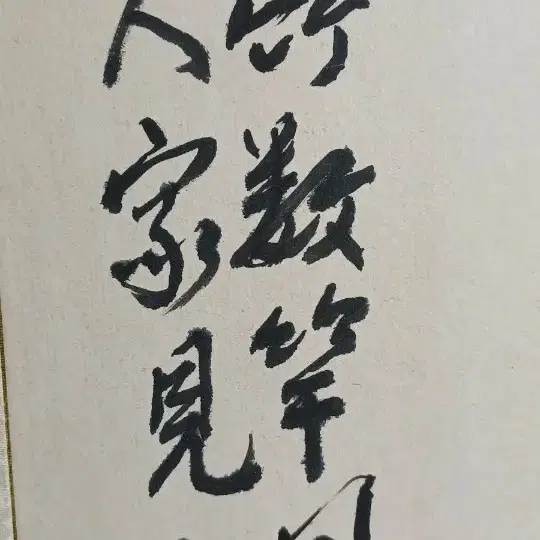 竹數竿
人家見